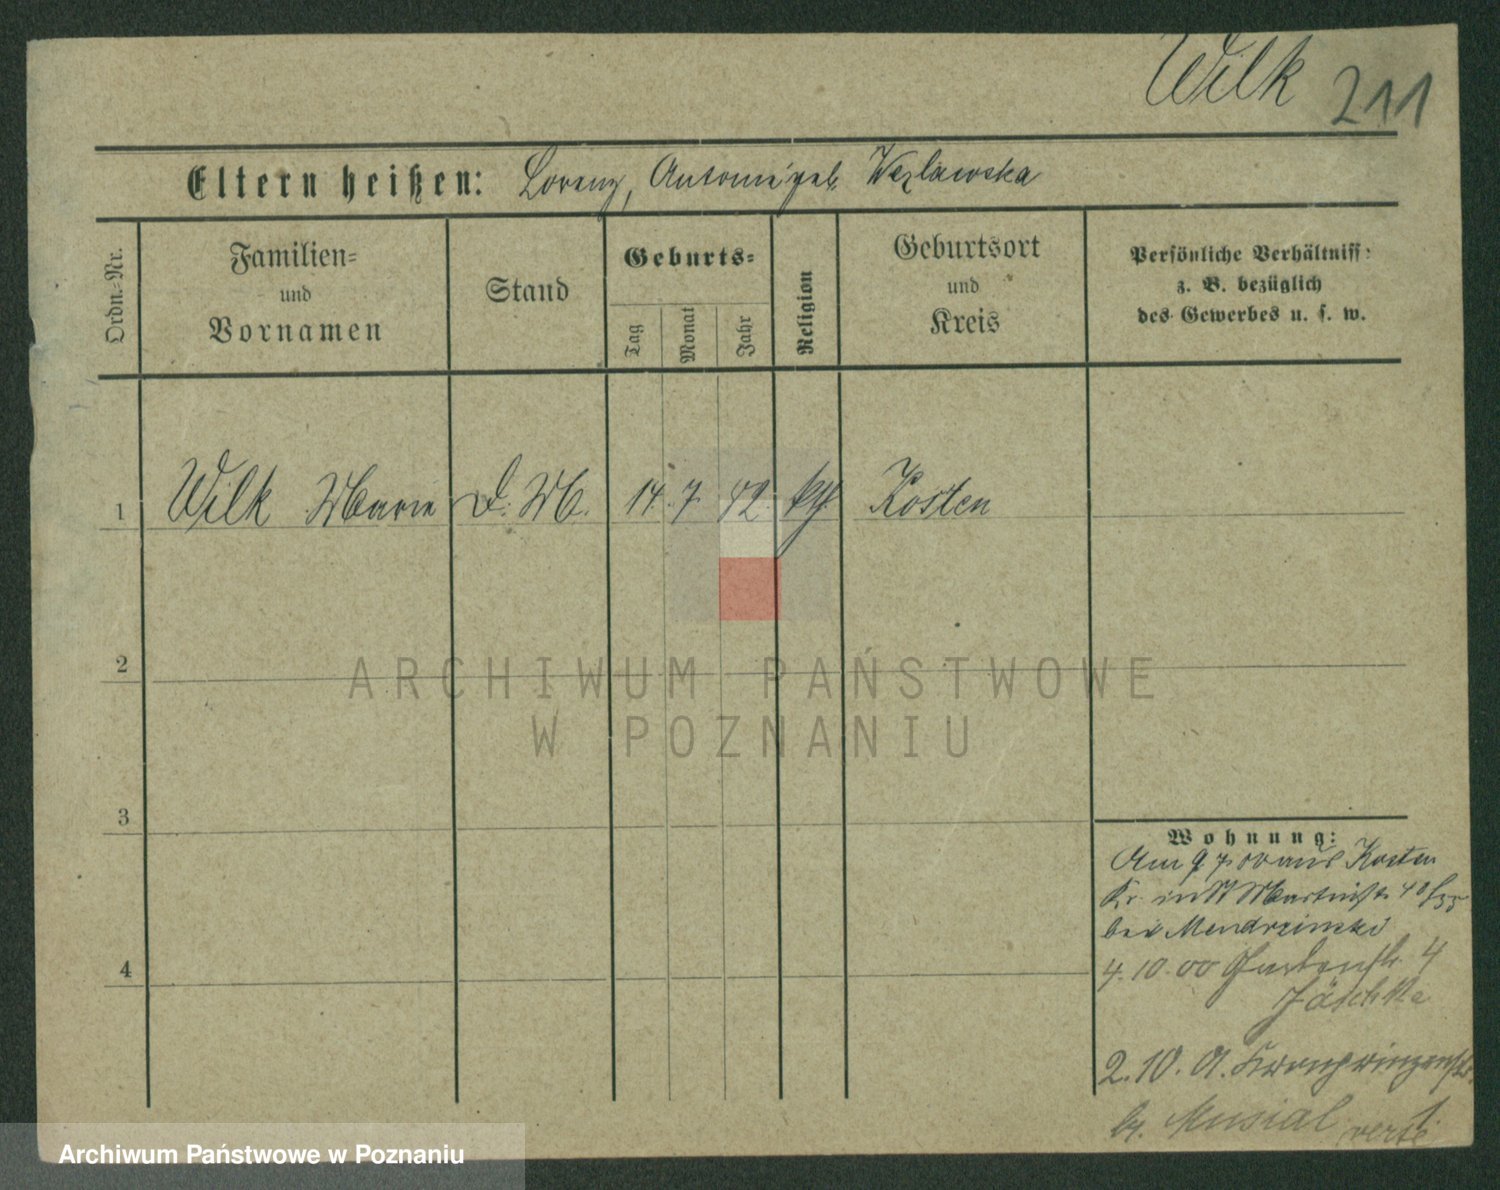 Wilk 211
Eltern heißen: Lorenz, Antonie geb. Wezlawska
Ordn.-Nr.
Familien-
und
Vornamen
Stand
Geburts-
Tag
Monat
Jahr
Religion
Geburtsort
und
Kreis
Persönliche Verhältniss:
z. B. bezüglich
des Gewerbes u. s. w.
1 Wilk Marie D. M. 14. 7. 82. kth. Kosten
2
ARCHIWUM PAŃSTWOWE
W POZNANIU
3
Wohnung:
Am 9 7 00 aus Kosten
Kr. in St Martinstr. 40
bei Mendrzinski
4. 10. 00 Gartenstr. 4
Jäschke
4
2. 10. 01. Kronprinzenstr.
b. Musial verte
Archiwum Państwowe w Poznaniu